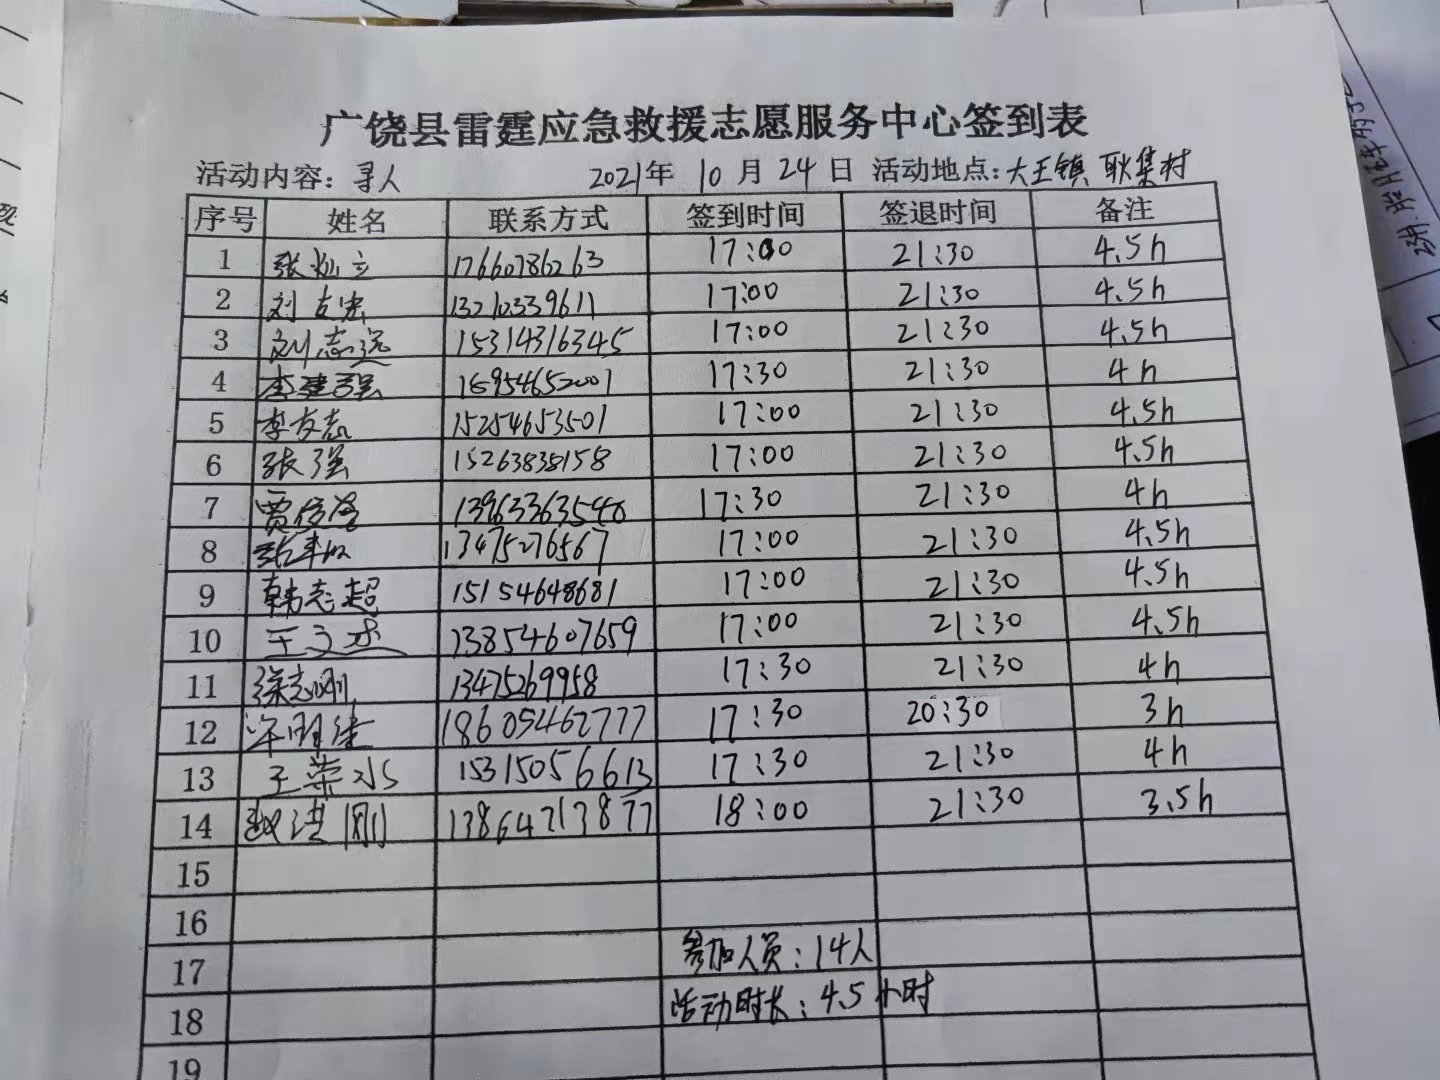 广饶县雷霆应急救援志愿服务中心签到表
活动内容: 寻人 2021年 10月24日 活动地点: 大王镇 耿集村
序号 姓名 联系方式 签到时间 签退时间 备注
1 张灿立 17660786263 17:00 21:30 4.5h
2 刘友宏 13210339611 17:00 21:30 4.5h
3 刘志远 15314316345 17:00 21:30 4.5h
4 李建强 17:30 21:30 4h
5 李友志 15254653501 17:00 21:30 4.5h
6 张强 15263838158 17:00 21:30 4.5h
7 贾 13963363540 17:30 21:30 4h
8 13475276567 17:00 21:30 4.5h
9 韩志超 15154648681 17:00 21:30 4.5h
10 王 13854607659 17:00 21:30 4.5h
11 徐志刚 13475269958 17:30 21:30 4h
12 许明 18605462777 17:30 20:30 3h
13 王荣水 15315056613 17:30 21:30 4h
14 赵洪刚 13864713877 18:00 21:30 3.5h
15
16
17 参加人员: 14人
18 活动时长: 4.5小时
19